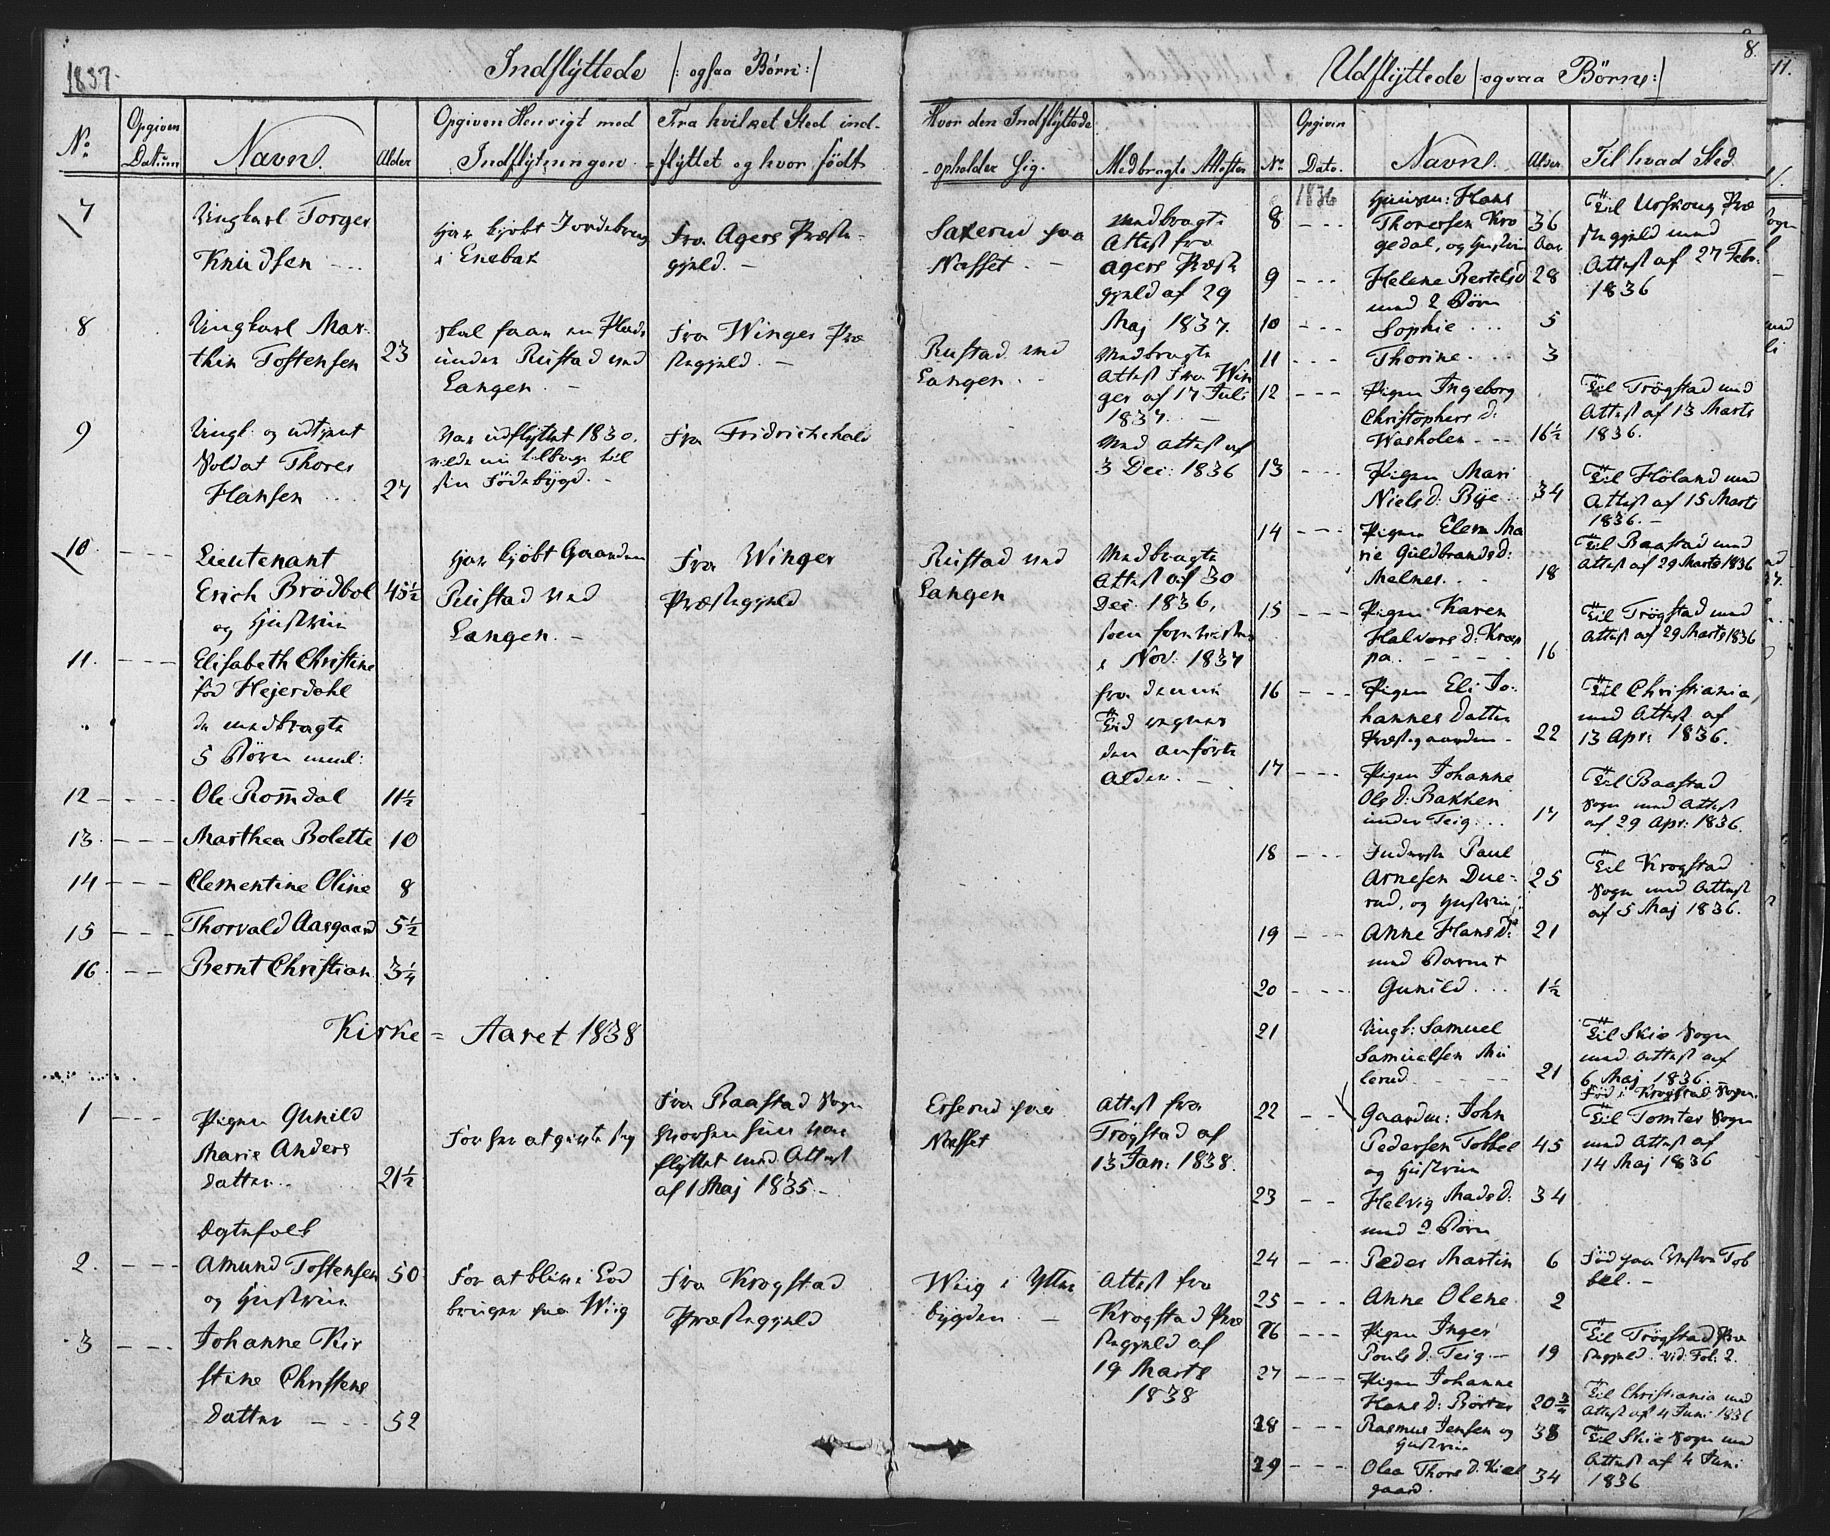 1837.
Indflÿttede |: ogsaa Børn :|
No
Opgiven Datum
Navn.
Alder
Opgiven Hensigt med Indflÿtningen.
Fra hvilket Sted ind-
flÿttet og hvor født
Hvor den Indflÿttede
opholder sig.
Medbragte Attester
7
Ungkarl Torger
Knudsen
Har kjøbt Jordebrug
i Enebak
Fra Agers Præste-
gjeld.
Saxerud paa
Næsset.
medbragte
Attest fra
Agers Præste
gjeld af 29
Maj 1837.
8
Ungkarl Mar-
then Tostensen 23
skal faae en Plads
under Rustad ved
Langen.
Fra Winger Præ
stegjeld.
Rustad ved
Langen.
Medbragte
Attest fra Win
ger af 17 Juli
1837.
9
Ungk. og udtjent
Soldat Thores
Hansen 27
Var udflyttet 1830.
vilde nu tilbage til
sin Fødebÿgd.
Fra Fridrichshald
Med Attest af
3 Dec: 1836
10
Lieutenant
Erich Brødbol 45½
og Hustrue
Har kjøbt Gaarden
Rustad ved
Langen.
Fra Winger
Præstegjeld
Rustad ved
Langen
Medbragte
Attest af 30
Dec. 1836,
som
i Nov. 1837
fra denne
Tid regnes
den anførte
Alder.
11.
Elisabeth Christine
fød Hejerdahl
de medbragte
5 Børn neml:
12 Ole Romdal 11½
13. Marthea Bolette 10
14 Clementine Oline 8
15 Thorvald Aasgaard 5½
16. Bernt Christian 3¼
Kirke = Aaret 1838
1
Pigen Gunild
Marie Anders
datter 21½
For her at gifte sig
Fra Baastad Sogn
hvorhen hun var
flyttet med Attest
af 1 Maj 1835.
Esserud paa
Næsset
Attest fra
Trøgstad af
13 Jan: 1838.
Ægtefolk
2. Amund Tostensen 50
og Hustrue
For at blive Lod
bruger paa Wiig
Fra Krogstad
Præstegjeld
Wiig i Ytter
bÿgden.
Attest fra
Krogstad Præ
stegjeld af
19 Marts
1838
3 Johanne Kir
stine Christens
datter 52
8.
Udflÿttede |: ogsaa Børn :|
No
Opgiven Dato.
Navn.
Alder
Til hvad Sted
8 1836
Huusm: Hans
Thoresen Kro 36
gedal, og Hustrue Aar
Til Urskoug Præ
stegjeld med
Attest af 27 Febr.
1836
9 Helene Bertelsd 28
med 2 Børn
10 Sophie 5
11 Thorine 3
12 Pigen Ingeborg
Christophers d.
Washolen 16½
Til Trögstad med
Attest af 13 Marts
1836.
13 Pigen Mari
Niels d. Bÿe 34
Til Høland med
Attest af 15 Marts
1836.
14 Pigen Elen Ma
rie Guldbrands d:
Melnes. 18
Til Baastad med
Attest af 29 Marts 1836
15 Pigen Karen
Halvors d: Kræp
pa. 16
Til Trögstad med
Attest af 29 Marts 1836
16 Pigen Eli Jo-
hannes datter
Præstegaarden 22
Til Christiania,
med Attest af
13 Apr: 1836.
17 Pigen Johanne
Ols d: Bakken
under Teig. 17
Til Baastad
Sogn med Attest
af 29 Apr: 1836.
18 Inderste Paul
Arnesen Due- 25
rud, og Hustrue
Til Krogstad
Sogn med Attest
af 5 Maj 1836.
19 Anne Hans D: 21
med Barnet
20 Gunild 1½
21 Ungk: Samuel
Samuelsen Mü
lerud 21
Til Skie Sogn
med Attest af
6 Maj 1836.
Fød i Krogstad Sogn.
22 Gaardm: John
Pedersen Tobbel 45
og Hustrue
Til Tomter Sogn
med Attest af
14 Maj 1836
23 Helvig Mads d: 34
med 2 Børn
24 Peder Martin 6
Fød paa Tob
bel.
25 Anne Olene 2
26 Pigen Inger
Pouls d: Teig 19
Til Trögstad Præ
stegjeld. vid. Fol. 2.
27 Pigen Johanne
Hans d: Börter 20¾
Til Christiania med
Attest af 4 Juni 1836
28 Rasmus Jensen og 38
Hustrue
Til Skie Sogn med
Attest af 4 Juni
1836
29 Olea Thores d. Kiel 34
gaard.
11.